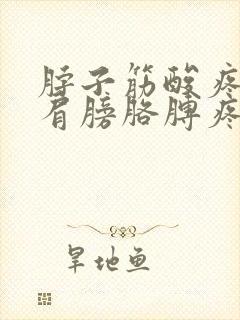 脖子筋酸疼
肩膀胳膊疼
旱地鱼